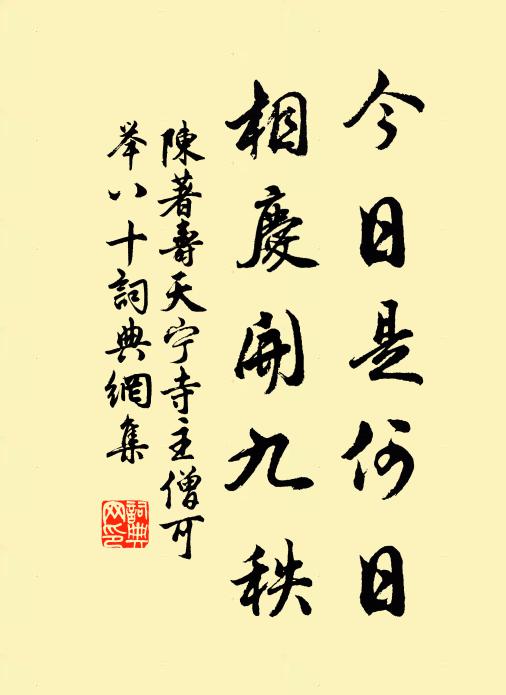 今日是何日
相慶開九秩
陳著壽天宁寺主僧可
举八十詞典網集
詞典网印